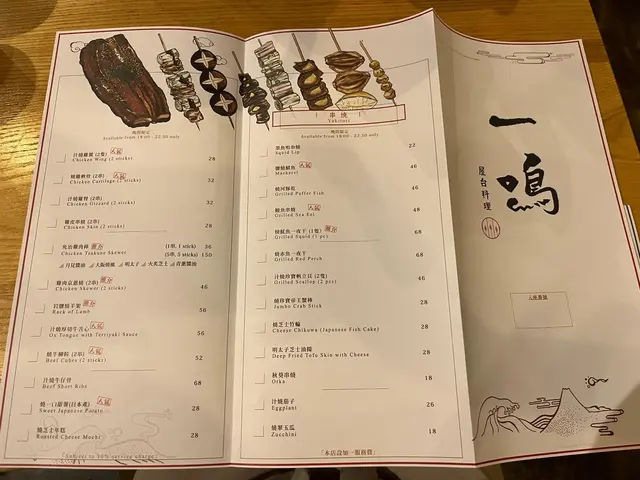 晚間限定
Available from 18:00 - 22:30 only
汁燒雞翼 (2隻) 人氣
Chicken Wing (2 sticks) 28
燒雞軟骨 (2串) 人氣
Chicken Cartilage (2 sticks) 32
汁燒雞腎 (2串)
Chicken Gizzard (2 sticks) 32
雞皮串燒 (2串)
Chicken Skin (2 sticks) 28
免治雞肉棒 推介 (1串, 1 stick) 36
Chicken Tsukune Skewer (5串, 5 sticks) 150
月見醬油 大阪燒風 明太子 火炙芝士 青蔥醬油
雞肉京蔥燒 (2串) 推介
Chicken Skewer (2 sticks) 46
燒羊架 推介
Rack of Lamb 56
汁燒厚切牛舌心 人氣
Ox Tongue with Terriyaki Sauce 56
燒牛柳粒 (2串) 人氣
Beef Cubes (2 sticks) 52
汁燒牛仔骨
Beef Short Ribs 68
燒一口甜薯(日本產) 人氣
Sweet Japanese Potato 28
燒芝士年糕
Roasted Cheese Mochi 28
Subject to 10% service charge
串燒
Yakitori
晚間限定
Available from 18:00 - 22:30 only
墨魚咀串燒
Squid Lip 22
鹽燒鯖魚 人氣
Mackerel 46
燒河豚乾
Grilled Puffer Fish 46
鰻魚串燒 人氣
Grilled Sea Eel 48
燒魷魚一夜干 (1隻) 推介
Grilled Squid (1 pc) 68
燒赤魚一夜干
Grilled Red Perch 68
汁燒珍寶帆立貝 (2隻)
Grilled Scallop (2 pcs) 46
燒珍寶帝王蟹棒
Jumbo Crab Stick 28
燒芝士竹輪
Cheese Chikuwa (Japanese Fish Cake) 28
明太子芝士油揚
Deep Fried Tofu Skin with Cheese 28
秋葵串燒
Orka 18
汁燒茄子
Eggplant 26
燒翠玉瓜
Zucchini 18
「本店設加一服務費」
一鳴
屋台料理
入座番號